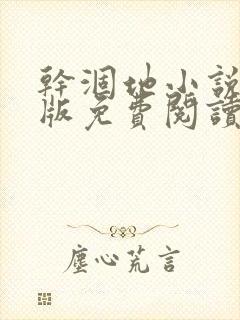 幹涸地小說
版免費閱讀
塵心荒言